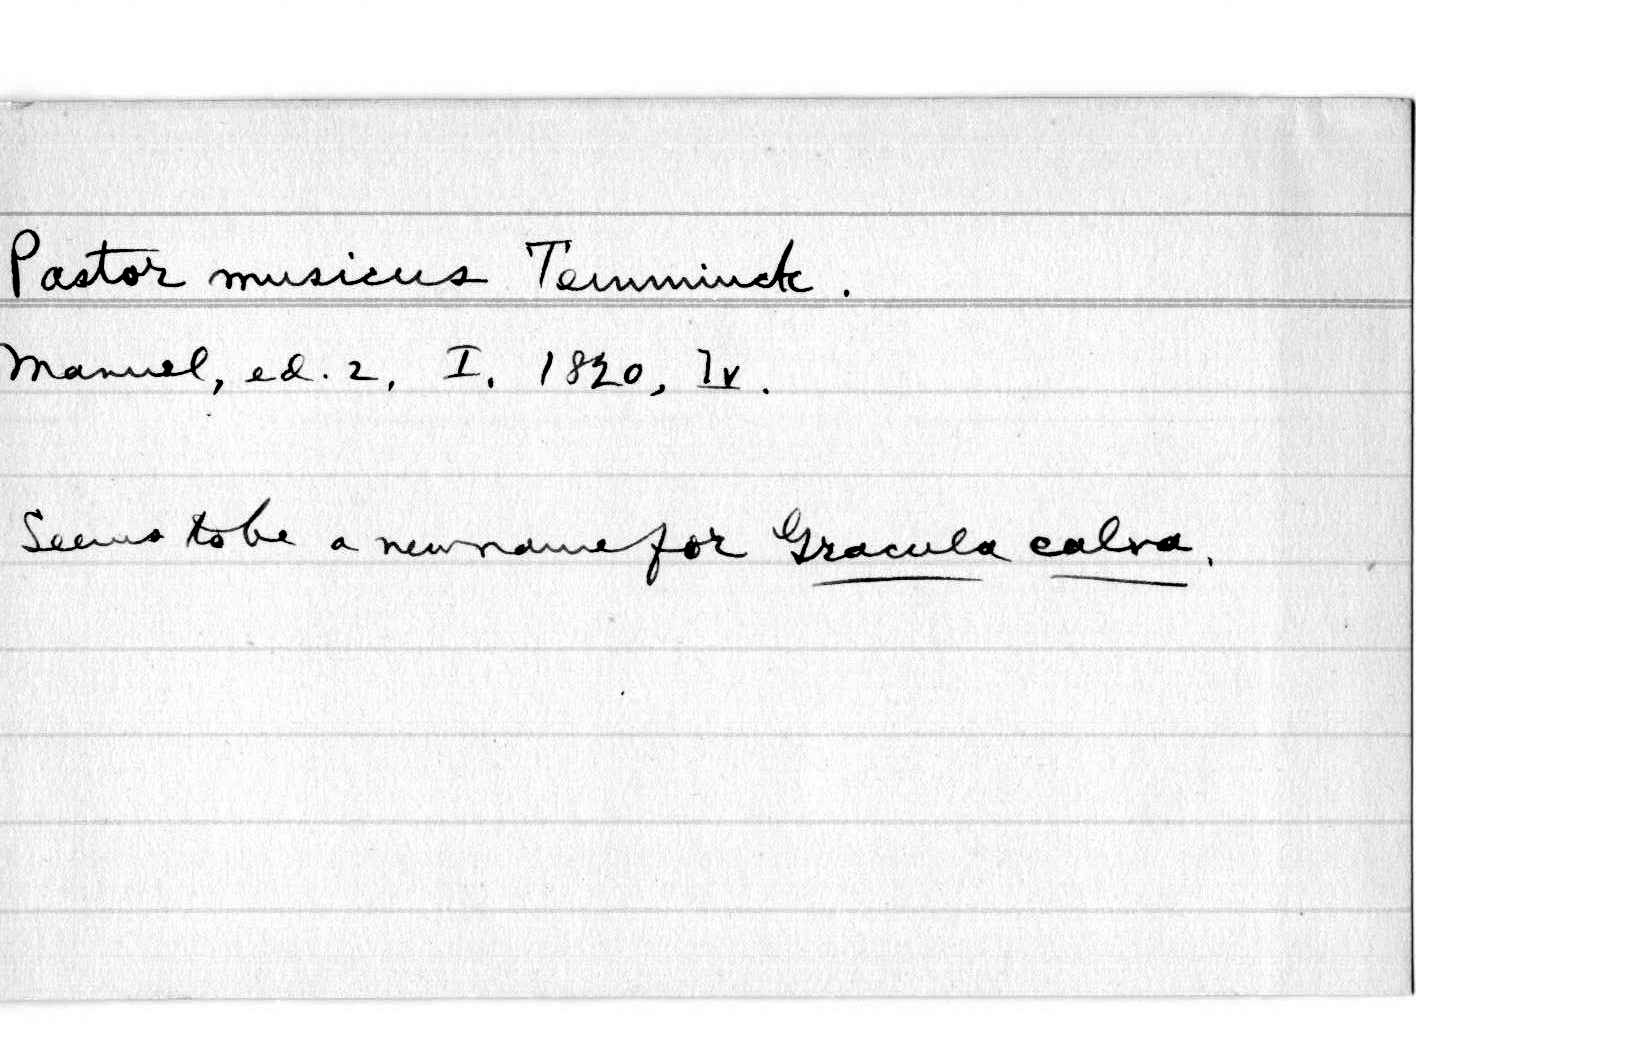 Pastor musicus Temminck.
Manuel, ed. 2, I, 1820, lv.
Seems to be a new name for Gracula calva.